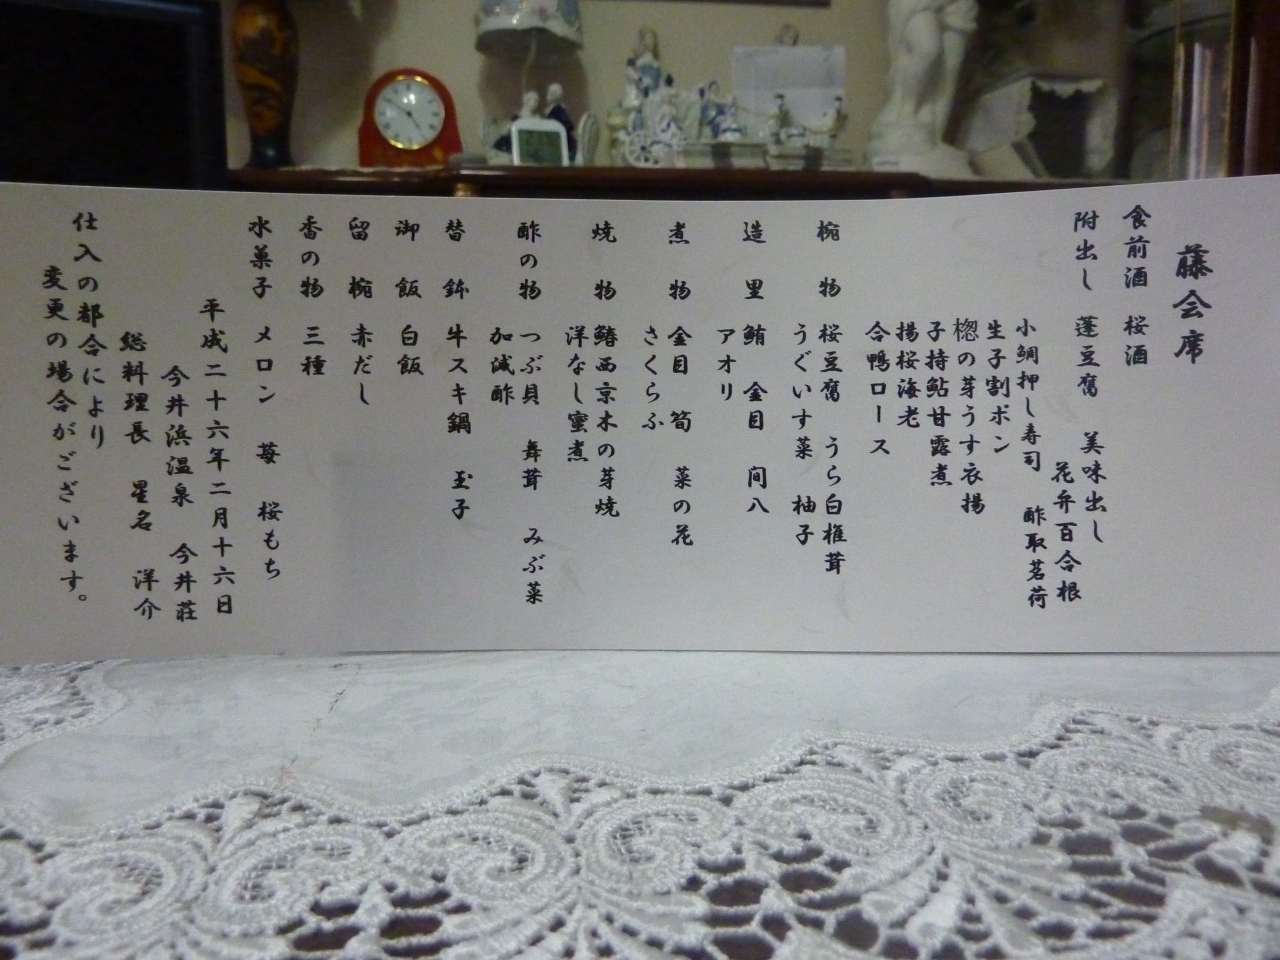 藤会席
食前酒 桜酒
附出し 蓬豆腐 美味出し
花弁百合根
小鯛押し寿司 酢取茗荷
生子割ポン
楤の芽うす衣揚
子持鮎甘露煮
揚桜海老
合鴨ロース
椀物 桜豆腐 うら白椎茸
うぐいす菜 柚子
造里 鮪 金目 間八
アオリ
煮物 金目 筍 菜の花
さくらふ
焼物 鰆西京木の芽焼
洋なし蜜煮
酢の物 つぶ貝 舞茸 みぶ菜
加減酢
替鉢 牛スキ鍋 玉子
御飯 白飯
留椀 赤だし
香の物 三種
水菓子 メロン 苺 桜もち
平成二十六年二月十六日
今井浜温泉 今井荘
総料理長 星名 洋介
仕入の都合により
変更の場合がございます。